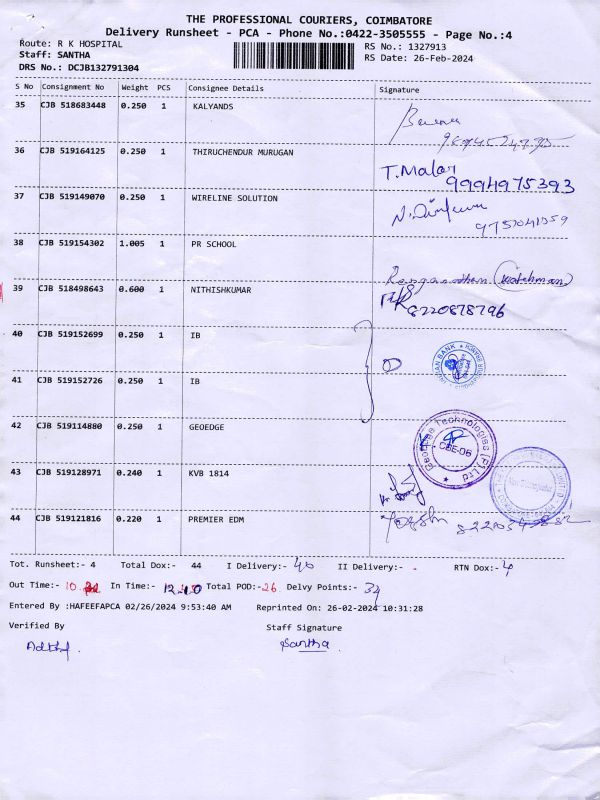 THE PROFESSIONAL COURIERS, COIMBATORE
Delivery Runsheet - PCA - Phone No.:0422-3505555 - Page No.:4
Route: R K HOSPITAL
RS No.: 1327913
Staff: SANTHA
RS Date: 26-Feb-2024
DRS No.: DCJB132791304
S No Consignment No Weight PCS Consignee Details Signature
35 CJB 518683448 0.250 1 KALYANDS
36 CJB 519164125 0.250 1 THIRUCHENDUR MURUGAN T.Malar
9994975393
37 CJB 519149070 0.250 1 WIRELINE SOLUTION
38 CJB 519154302 1.005 1 PR SCHOOL
39 CJB 518498643 0.600 1 NITHISHKUMAR
8220878796
40 CJB 519152699 0.250 1 IB
41 CJB 519152726 0.250 1 IB
42 CJB 519114880 0.250 1 GEOEDGE
CBE-06
43 CJB 519128971 0.240 1 KVB 1814
44 CJB 519121816 0.220 1 PREMIER EDM
Tot. Runsheet:- 4 Total Dox:- 44 I Delivery:- 40 II Delivery:- - RTN Dox:- 4
Out Time:- In Time:- 12.10 Total POD:-26 Delvy Points:- 34
Entered By :HAFEEFAPCA 02/26/2024 9:53:40 AM Reprinted On: 26-02-2024 10:31:28
Verified By Staff Signature
Santha